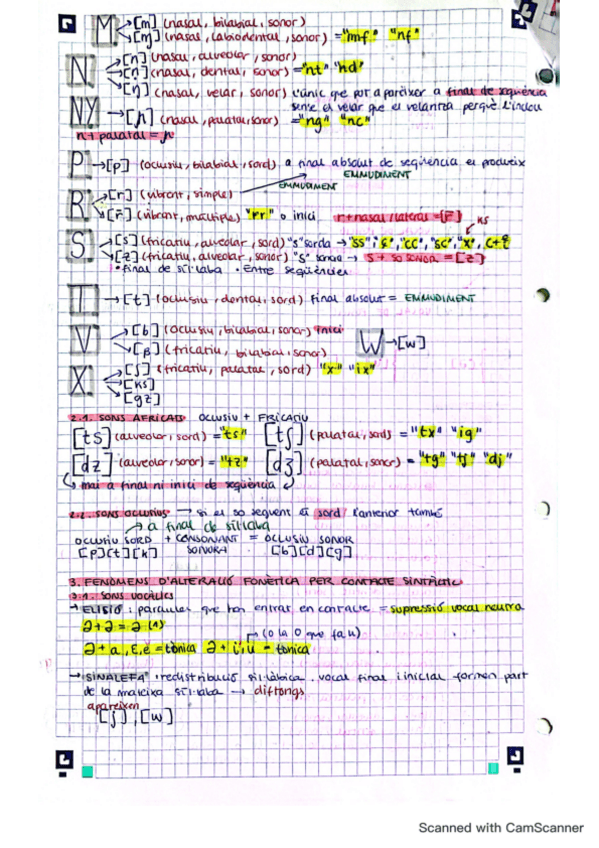 M → [m] (nasal, bilabial, sonor)
→ [ɱ] (nasal, labiodental, sonor) = "mf" "nf"
N → [n] (nasal, alveolar, sonor)
→ [n̪] (nasal, dental, sonor) = "nt" "nd"
→ [ŋ] (nasal, velar, sonor) L'únic que pot aparèixer a final de seqüència
sense el velar que el velaritza perquè l'inclou
NY → [ɲ] (nasal, palatal, sonor) = "ng" "nc"
n + palatal = ɲ
P → [p] (oclusiu, bilabial, sord) a final absolut de seqüència es produeix
EMMUDIMENT
R → [r] (vibrant, simple) EMMUDIMENT
→ [r̄] (vibrant, múltiple) "rr" o inici r + nasal / lateral = [r̄] KS
S → [s] (fricatiu, alveolar, sord) "s" sorda → "ss" i ç", "cc", "sc", "x",
→ [z] (fricatiu, alveolar, sonor) "s" sonora → s + so SONOR = [z]
• final de síl·laba • Entre seqüències
T → [t] (oclusiu, dental, sord) final absolut = EMMUDIMENT
V → [b] (oclusiu, bilabial, sonor) inici
→ [β] (fricatiu, bilabial, sonor) W → [w]
X → [ʃ] (fricatiu, palatal, sord) "x" "ix"
→ [ks]
→ [gz]
2.1. SONS AFRICATS OCLUSIU + FRICATIU
[ts] (alveolar, sord) = "ts" [tʃ] (palatal, sord) = "tx" "ig"
[dz] (alveolar, sonor) = "tz" [dʒ] (palatal, sonor) = "tg" "tj" "dj"
↳ mai a final ni inici de seqüència
2.2. SONS OCLUSIUS → si el so següent és sord l'anterior també
→ a final de síl·laba
OCLUSIU SORD + CONSONANT = OCLUSIU SONOR
[p][t][k] SONORA [b][d][g]
3. FENÒMENS D'ALTERACIÓ FONÈTICA PER CONTACTE SINTÀCTIC
3.1. SONS VOCÀLICS
→ ELISIÓ: paraules que han entrat en contacte = supressió vocal neutra
ə + ə = ə (1)
→ (o la o que fa u)
ə + a, ɛ, e = tònica ə + i, u = tònica
→ SINALEFA: redistribució sil·làbica. vocal final i inicial formen part
de la mateixa síl·laba → diftongs
apareixen
[j] [w]
Scanned with CamScanner